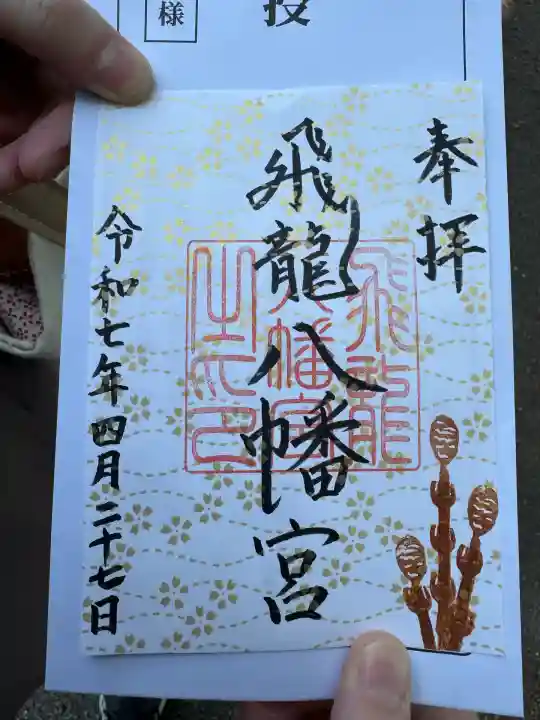 様
授
奉拝
飛龍八幡宮
飛龍
八幡宮
之印
令和七年四月二十七日